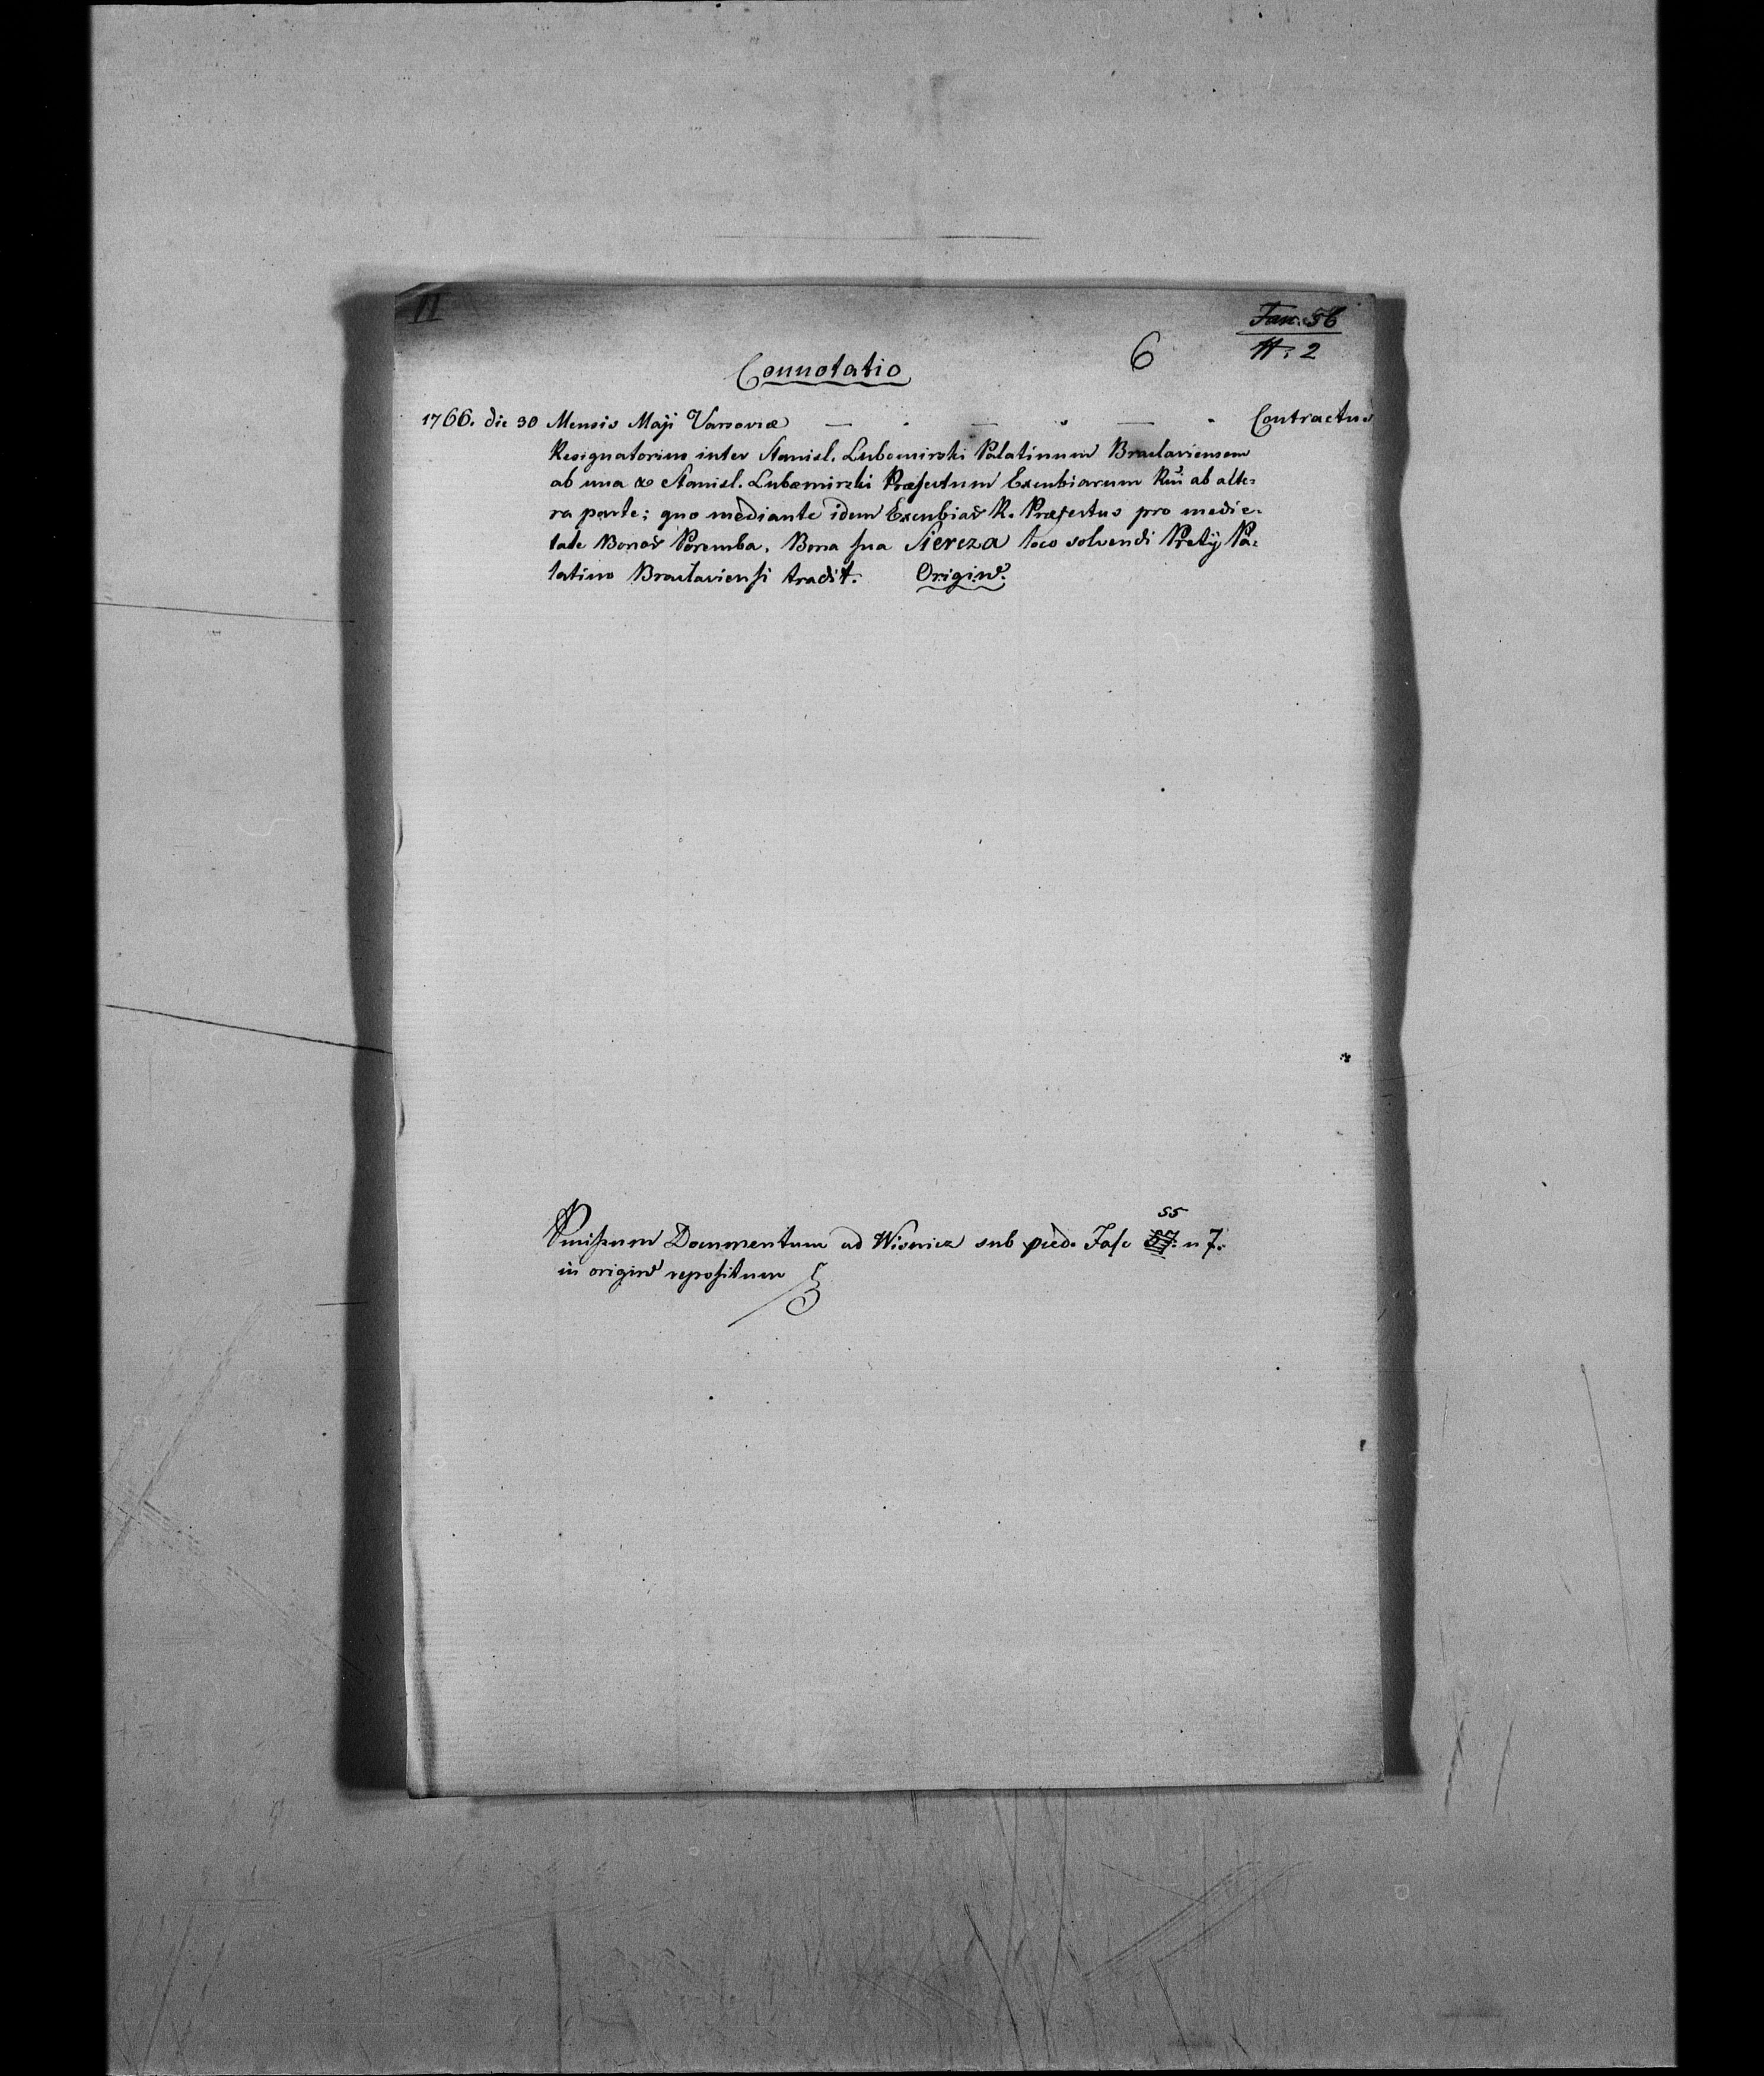 11
Fan: 56
N: 2
6
Connotatio
1766. die 30 Mensis Maji Varsoviæ — . — . — . Contractus
Resignatorius inter Stanisl. Lubomirski Palatinum Braclaviensem
ab una & Stanisl. Lubomirski Præfectum Excubiarum Rni ab alte=
ra parte; quo mediante idem Excubiar R. Præfectus pro medie=
tate Bonor Poremba, Bona sua Siercza loco solvendi Pretÿ Pa=
latino Braclaviensi tradit. Origin.
55
Præmissum Documentum ad Wisnicz sub præd. Fasc n 7.
in origin repositum